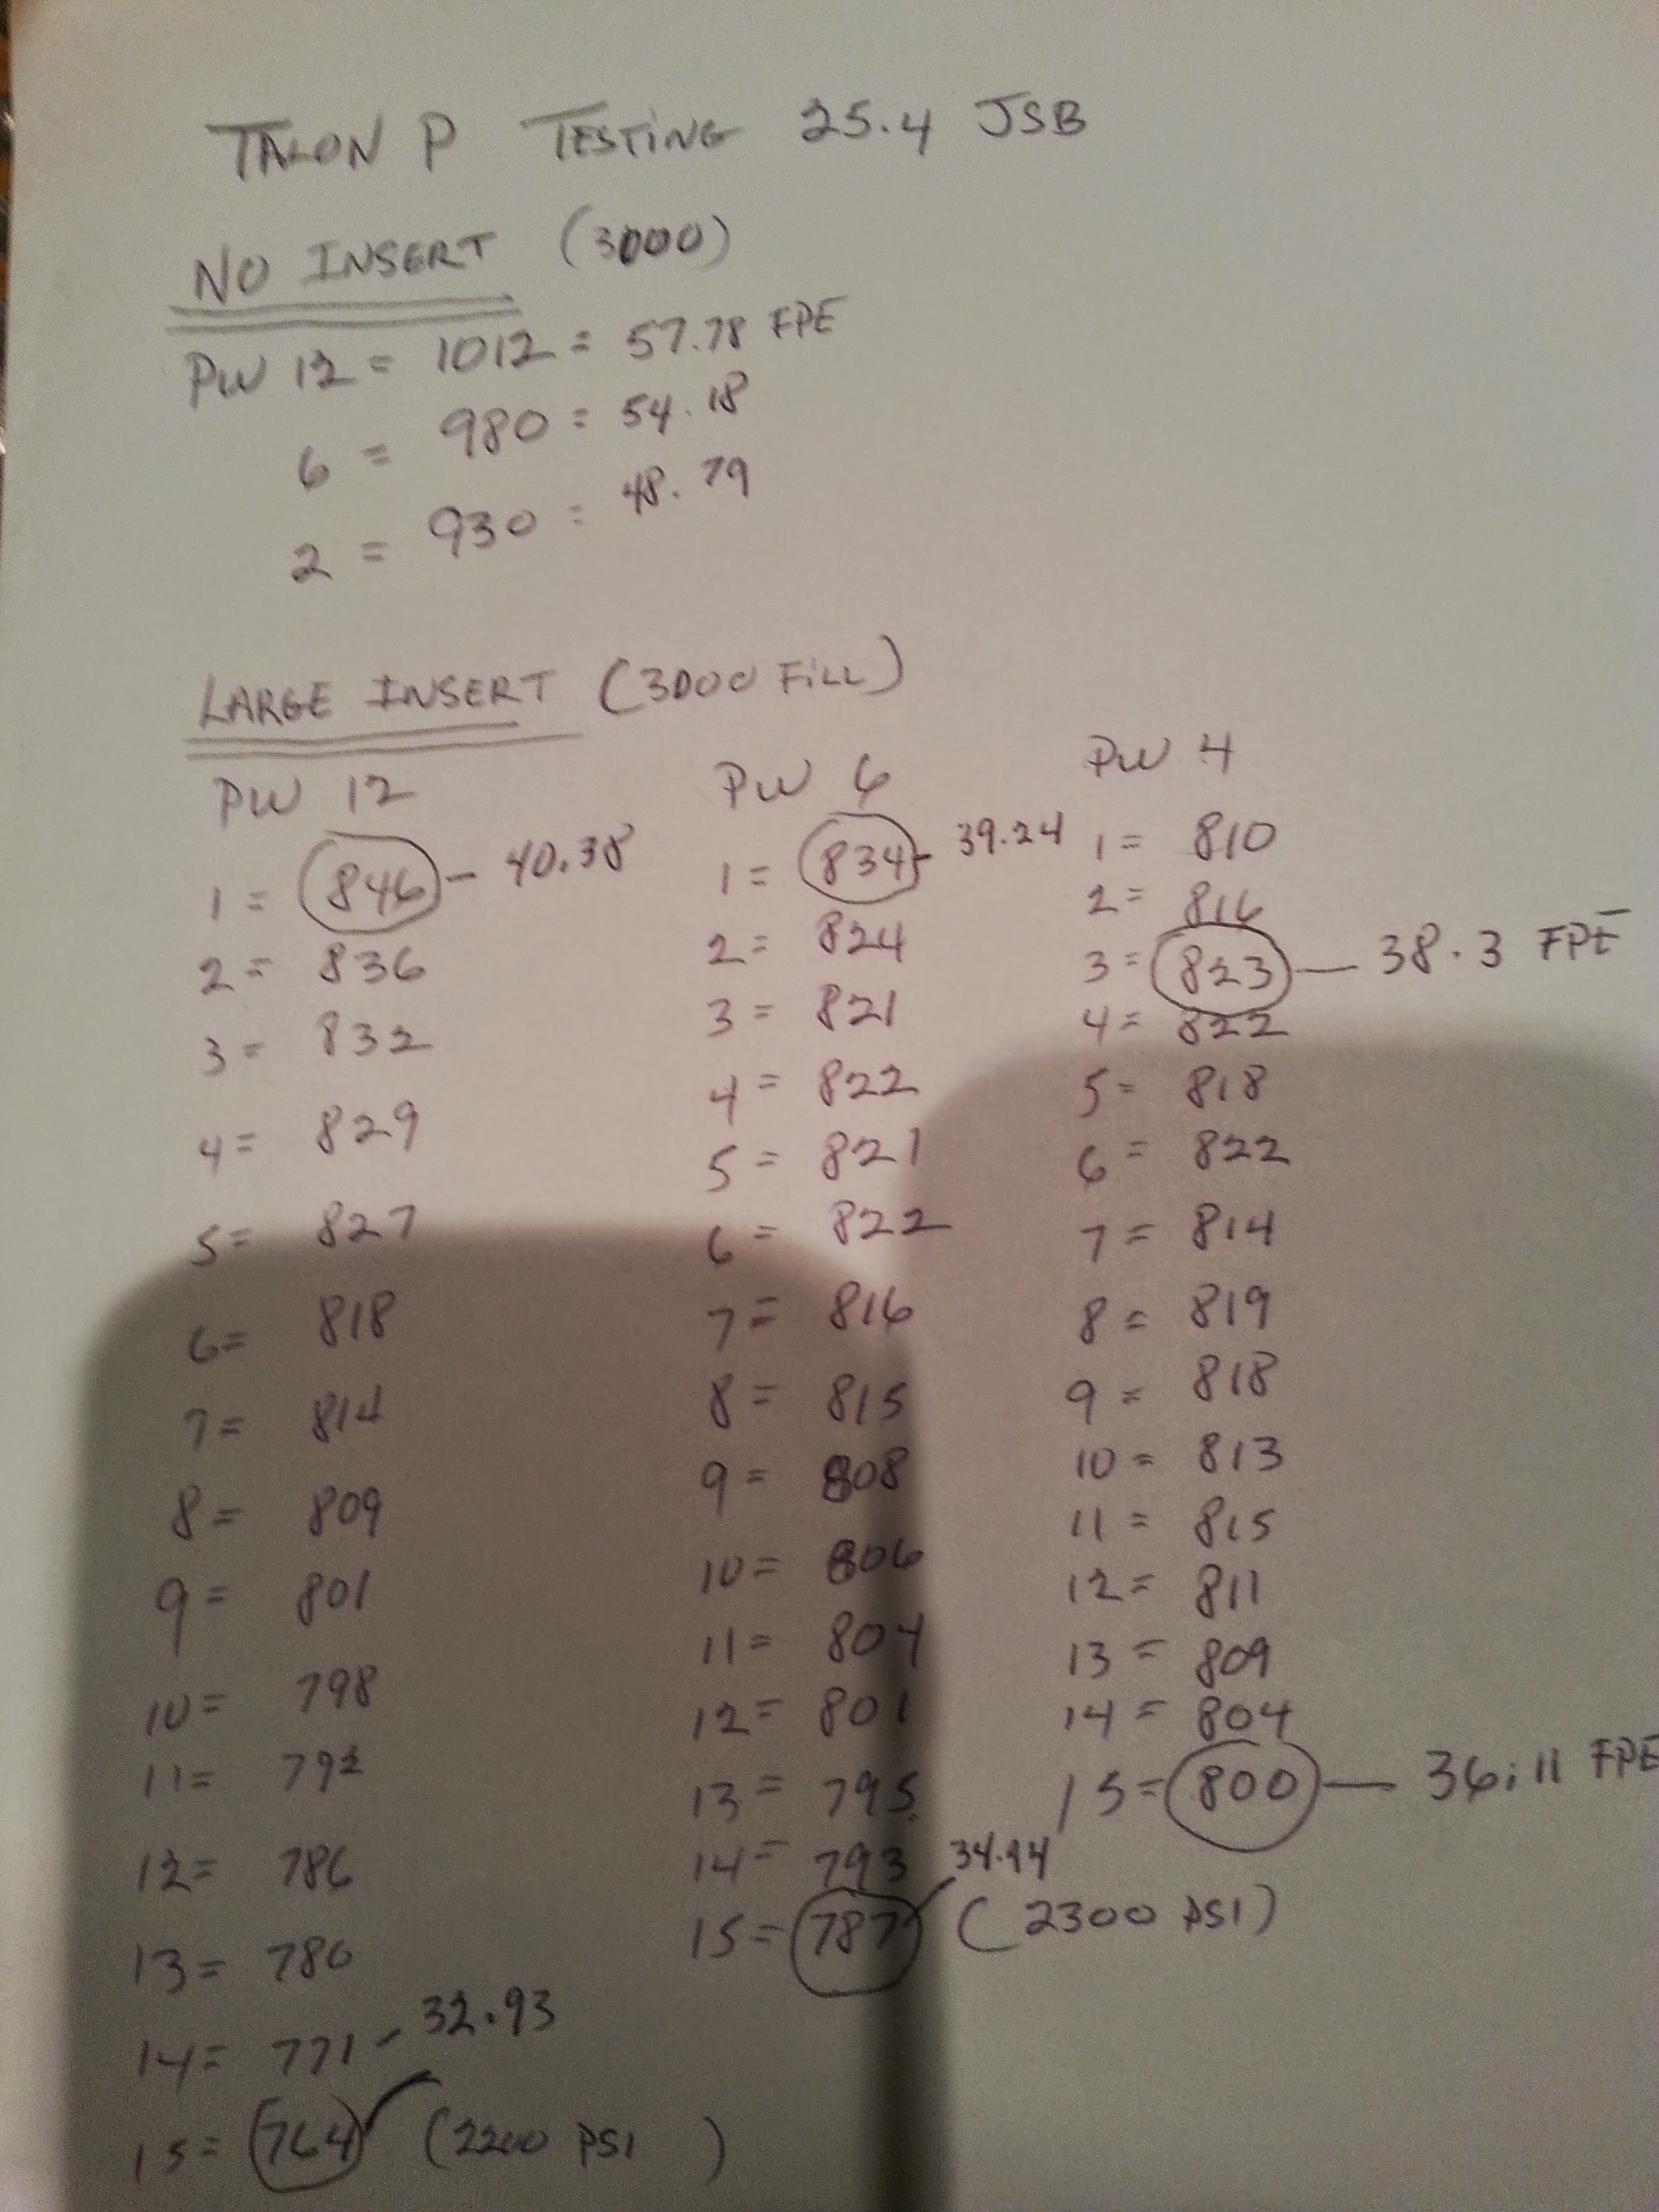 TALON P TESTING 25.4 JSB
NO INSERT (3000)
PW 12 = 1012 = 57.78 FPE
6 = 980 = 54.18
2 = 930 = 48.79
LARGE INSERT (3000 FILL)
PW 12
1 = 846 - 40.38
2 = 836
3 = 832
4 = 829
5 = 827
6 = 818
7 = 814
8 = 809
9 = 801
10 = 798
11 = 792
12 = 786
13 = 780
14 = 771
15 = 764 - 32.93 (2200 PSI)
PW 6
1 = 834 - 39.24
2 = 824
3 = 821
4 = 822
5 = 821
6 = 822
7 = 816
8 = 815
9 = 808
10 = 806
11 = 804
12 = 801
13 = 795
14 = 793
15 = 787 34.94 (2300 PSI)
PW 4
1 = 810
2 = 816
3 = 823 — 38.3 FPE
4 = 822
5 = 818
6 = 822
7 = 814
8 = 819
9 = 818
10 = 813
11 = 815
12 = 811
13 = 809
14 = 804
15 = 800 — 36.11 FPE